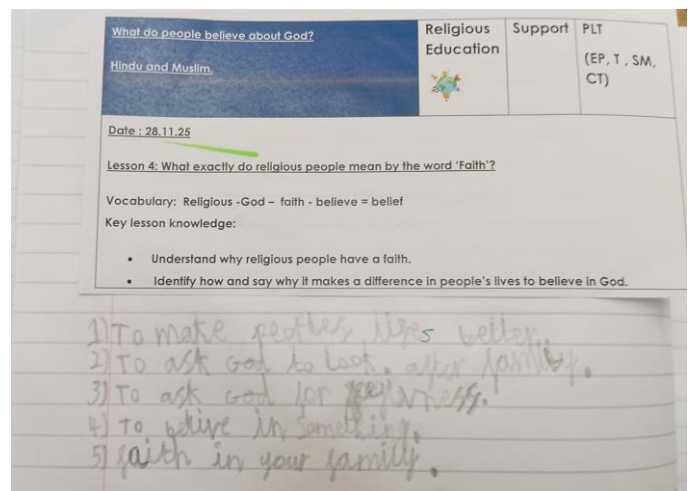 What do people believe about God?
Hindu and Muslim.
Religious
Education
Support
PLT
(EP, T , SM,
CT)
Date : 28.11.25
Lesson 4: What exactly do religious people mean by the word ‘Faith’?
Vocabulary: Religious -God – faith - believe = belief
Key lesson knowledge:
• Understand why religious people have a faith.
• Identify how and say why it makes a difference in people's lives to believe in God.
1) To make peoples lifes better.
2) To ask God to look after family.
3) To ask God for
4) To belive in something.
5) faith in your family.